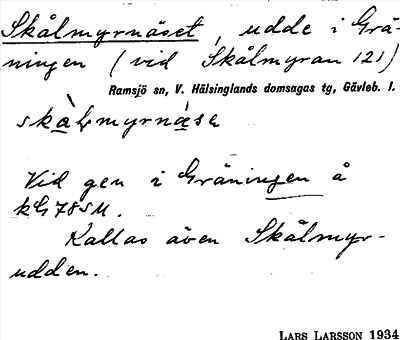 Skålmyrnäset, udde i Grä-
ningen (vid Skålmyran 121)
Ramsjö sn, V. Hälsinglands domsagas tg, Gävleb. l.
Vid gen i Gräningen å
kG785M.
Kallas även Skålmyr-
udden.
LARS LARSSON 1934